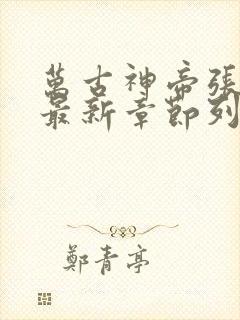 萬古神帝張
最新章節列
鄭青亭